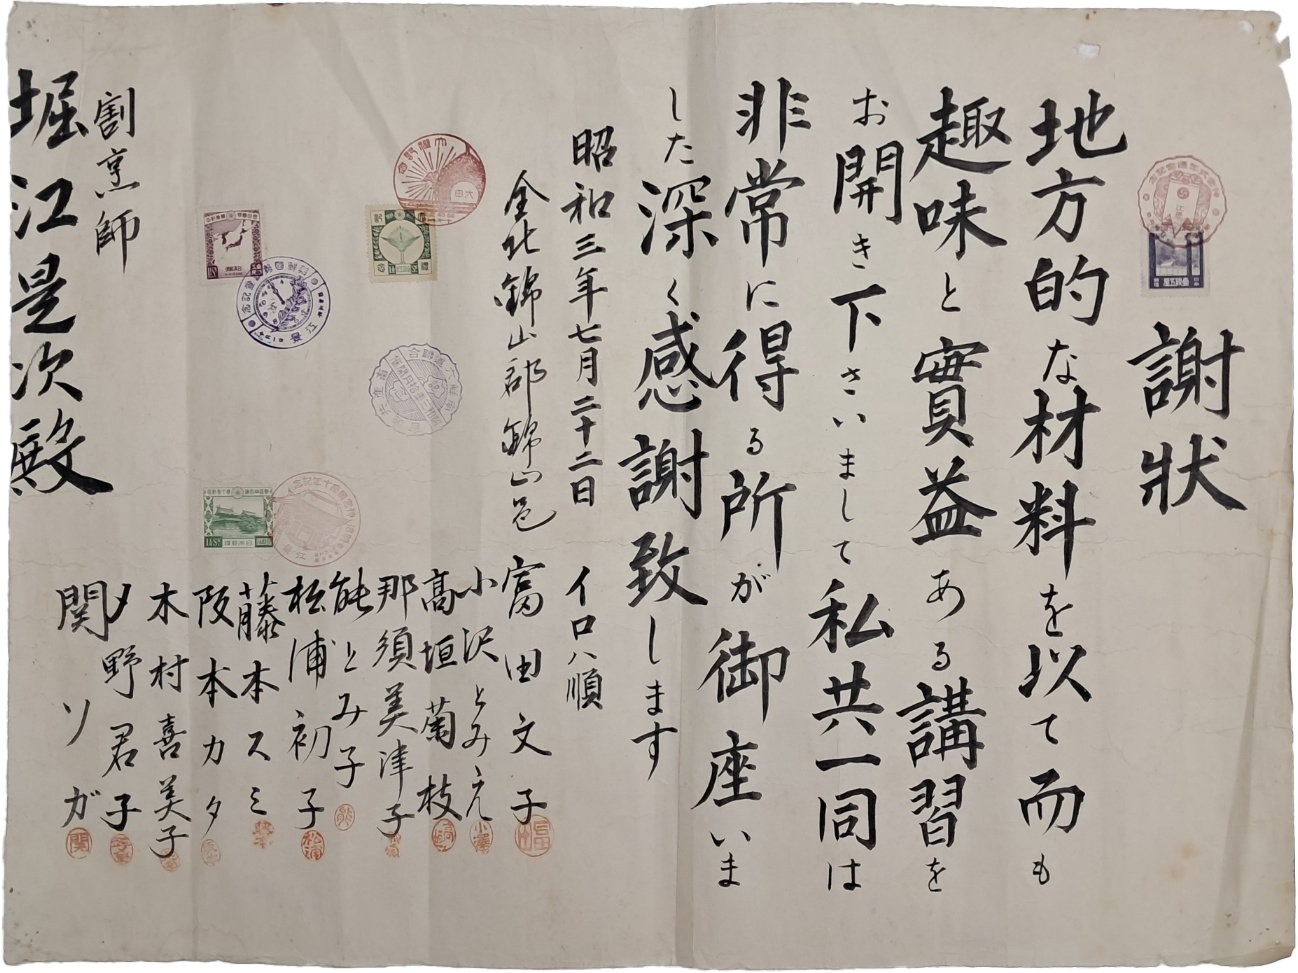 謝狀
地方的な材料を以て而も
趣味と實益ある講習を
お開き下さいまして私共一同は
非常に得る所が御座いま
した深く感謝致します
昭和三年七月二十二日
イロハ順
全北錦山郡錦山邑
富田文子
小沢とみえ
高垣菊枝
那須美津子
能とみ子
松浦初子
藤本スミ
阪本カタ
木村喜美子
夕野君子
関ソガ
割烹師
堀江是次殿